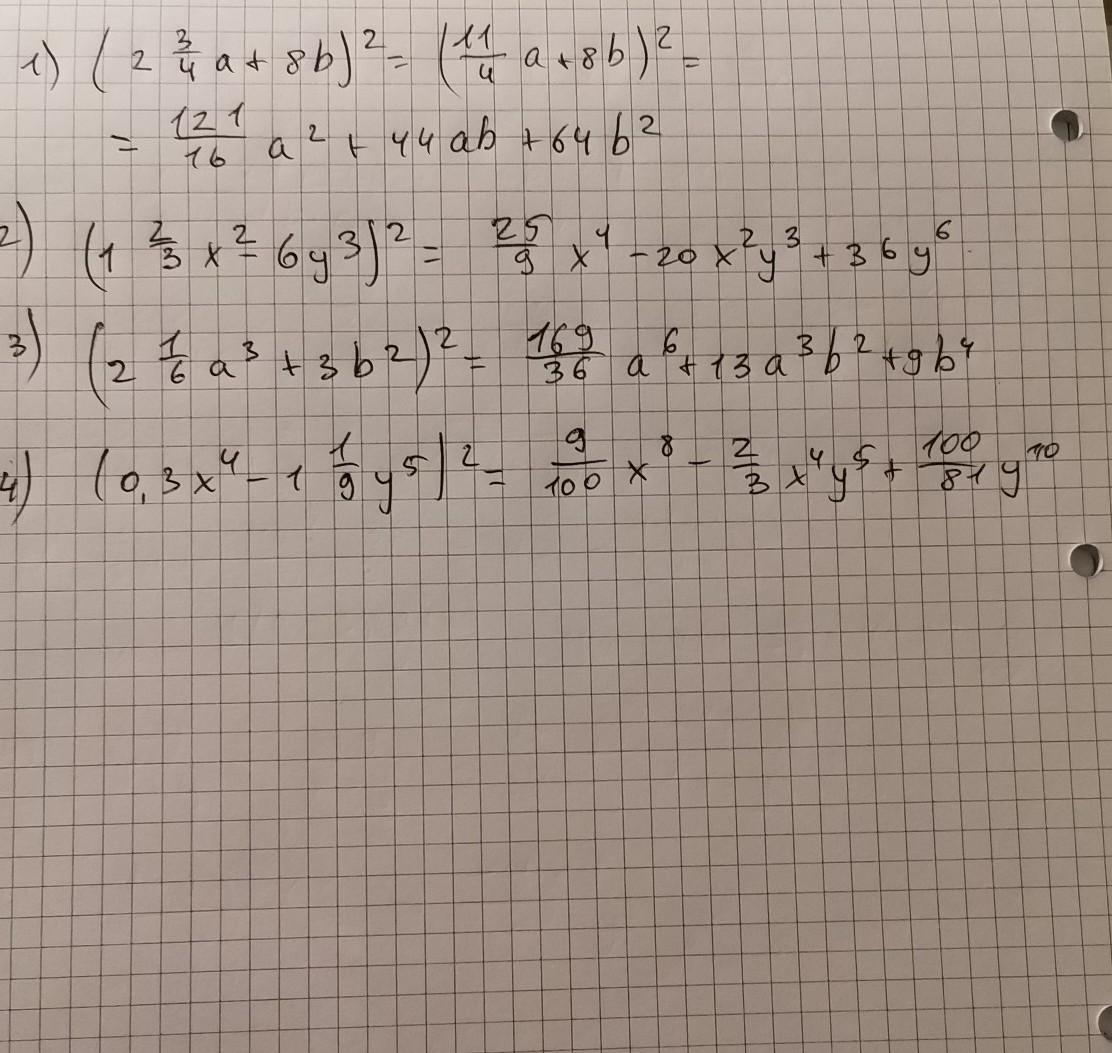 1) (2 3/4 a + 8b)² = (11/4 a + 8b)² =
= 121/16 a² + 44ab + 64b²
2) (1 2/3 x² - 6y³)² = 25/9 x⁴ - 20x²y³ + 36y⁶
3) (2 1/6 a³ + 3b²)² = 169/36 a⁶ + 13a³b² + 9b⁴
4) (0,3x⁴ - 1 1/9 y⁵)² = 9/100 x⁸ - 2/3 x⁴y⁵ + 100/81 y¹⁰